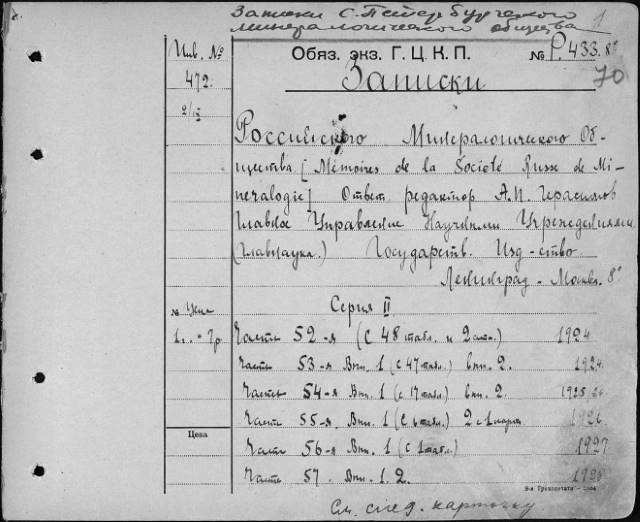 Записки С.Петербургского
минералогического общества
1
Инв. №
Обяз. экз. Г.Ц.К.П.
№ Р.433.8°
472.
Записки
70
2/IX
Российского Минералогического Об-
щества [Mémoires de la Société Russe de Mi-
neralogie] Ответ. редактор А.П. Герасимов
Главное Управление Научными Учреждениями
(Главнаука.) Государств. Изд-ство.
Ленинград - Москва. 8°
Серия II
№ Цена
1 - 7р.
Часть 52-я (с 48 табл. и 2) 1924
Часть 53-я Вып. 1 (с 47 табл.) вып. 2. 1924.
Часть 54-я Вып. 1 (с 17 табл.) вып. 2. 1925/26
Часть 55-я Вып. 1 (с табл.) 2 с 1 картой 1926
Цена
Часть 56-я Вып. 1 (с 1 табл.) 1927
Часть 57. Вып. 1. 2. 1928
См. след. карточку